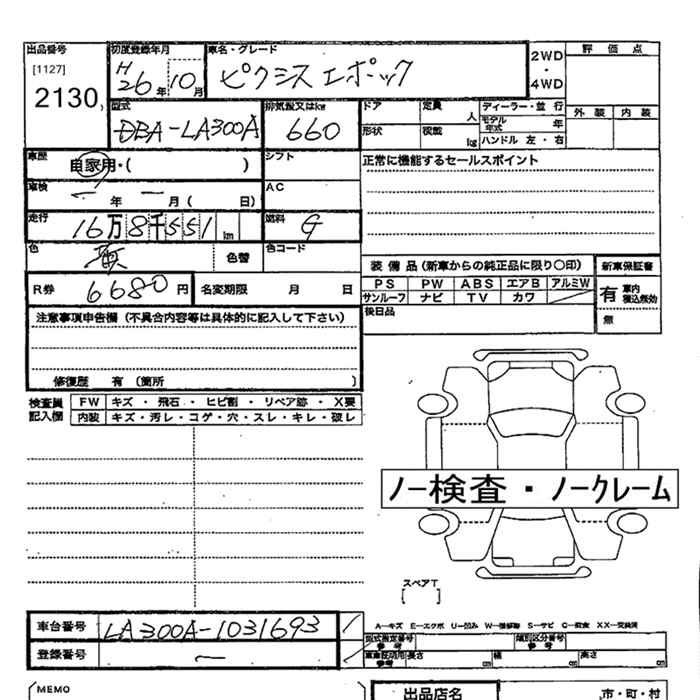 出品番号 初度登録年月 車名・グレード 2WD・4WD 評価点
[1127] H26年10月 ピクシス エポック
2130 型式 排気量又はkw ドア 定員 人 ディーラー・並行 外装 内装
DBA-LA300A 660 形状 積載 kg モデル年式 年
ハンドル 左・右
車歴 自家用・( ) シフト 正常に機能するセールスポイント
車検 ー年ー月( 日) AC
走行 16万8千551km 燃料 G
色 色替 色コード 装備品(新車からの純正品に限り〇印) 新車保証書
PS PW ABS エアB アルミW 有 車内 積込無効
R券 6680円 名変期限 月 日 サンルーフ ナビ TV カワ
無
注意事項申告欄(不具合内容等は具体的に記入して下さい) 後日品
修復歴 有 〔箇所 〕
検査員記入欄 FW キズ ・ 飛石 ・ ヒビ割 ・ リペア跡 ・ X要
内装 キズ・汚レ・コゲ・穴・スレ・キレ・破レ
ノー検査・ノークレーム
スペアT
[ ]
車台番号 LA300A-1031693 A−キズ E−エクボ U−凹み S−サビ XX−交換済
型式指定番号 参考 類別区分番号 参考
登録番号 ー 長さ cm 幅 cm 高さ cm
MEMO 出品店名 市・町・村